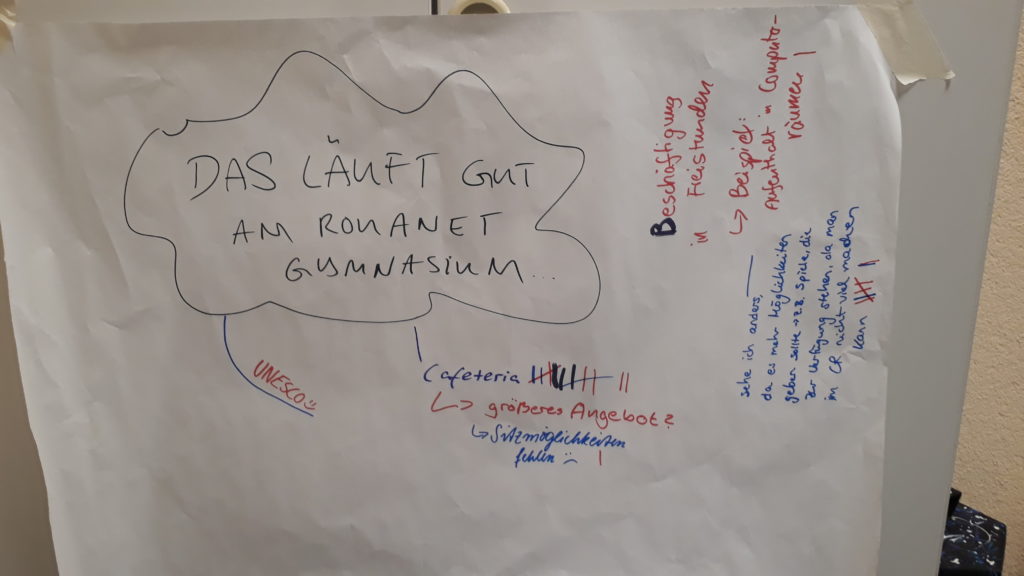 DAS LÄUFT GUT
AM ROUANET
GYMNASIUM...
UNESCO :)
Cafeteria |||| |||| || ||
↳ größeres Angebot?
↳ Sitzmöglichkeiten
fehlen :( |
Beschäftigung
in Freistunden
↳ Beispiel:
Aufenthalt in Computer-
räumen |
sehe ich anders,
da es mehr Möglichkeiten
geben sollte → z.B. Spiele, die
zur Verfügung stehen, da man
im CR nicht viel machen
kann |||| ||